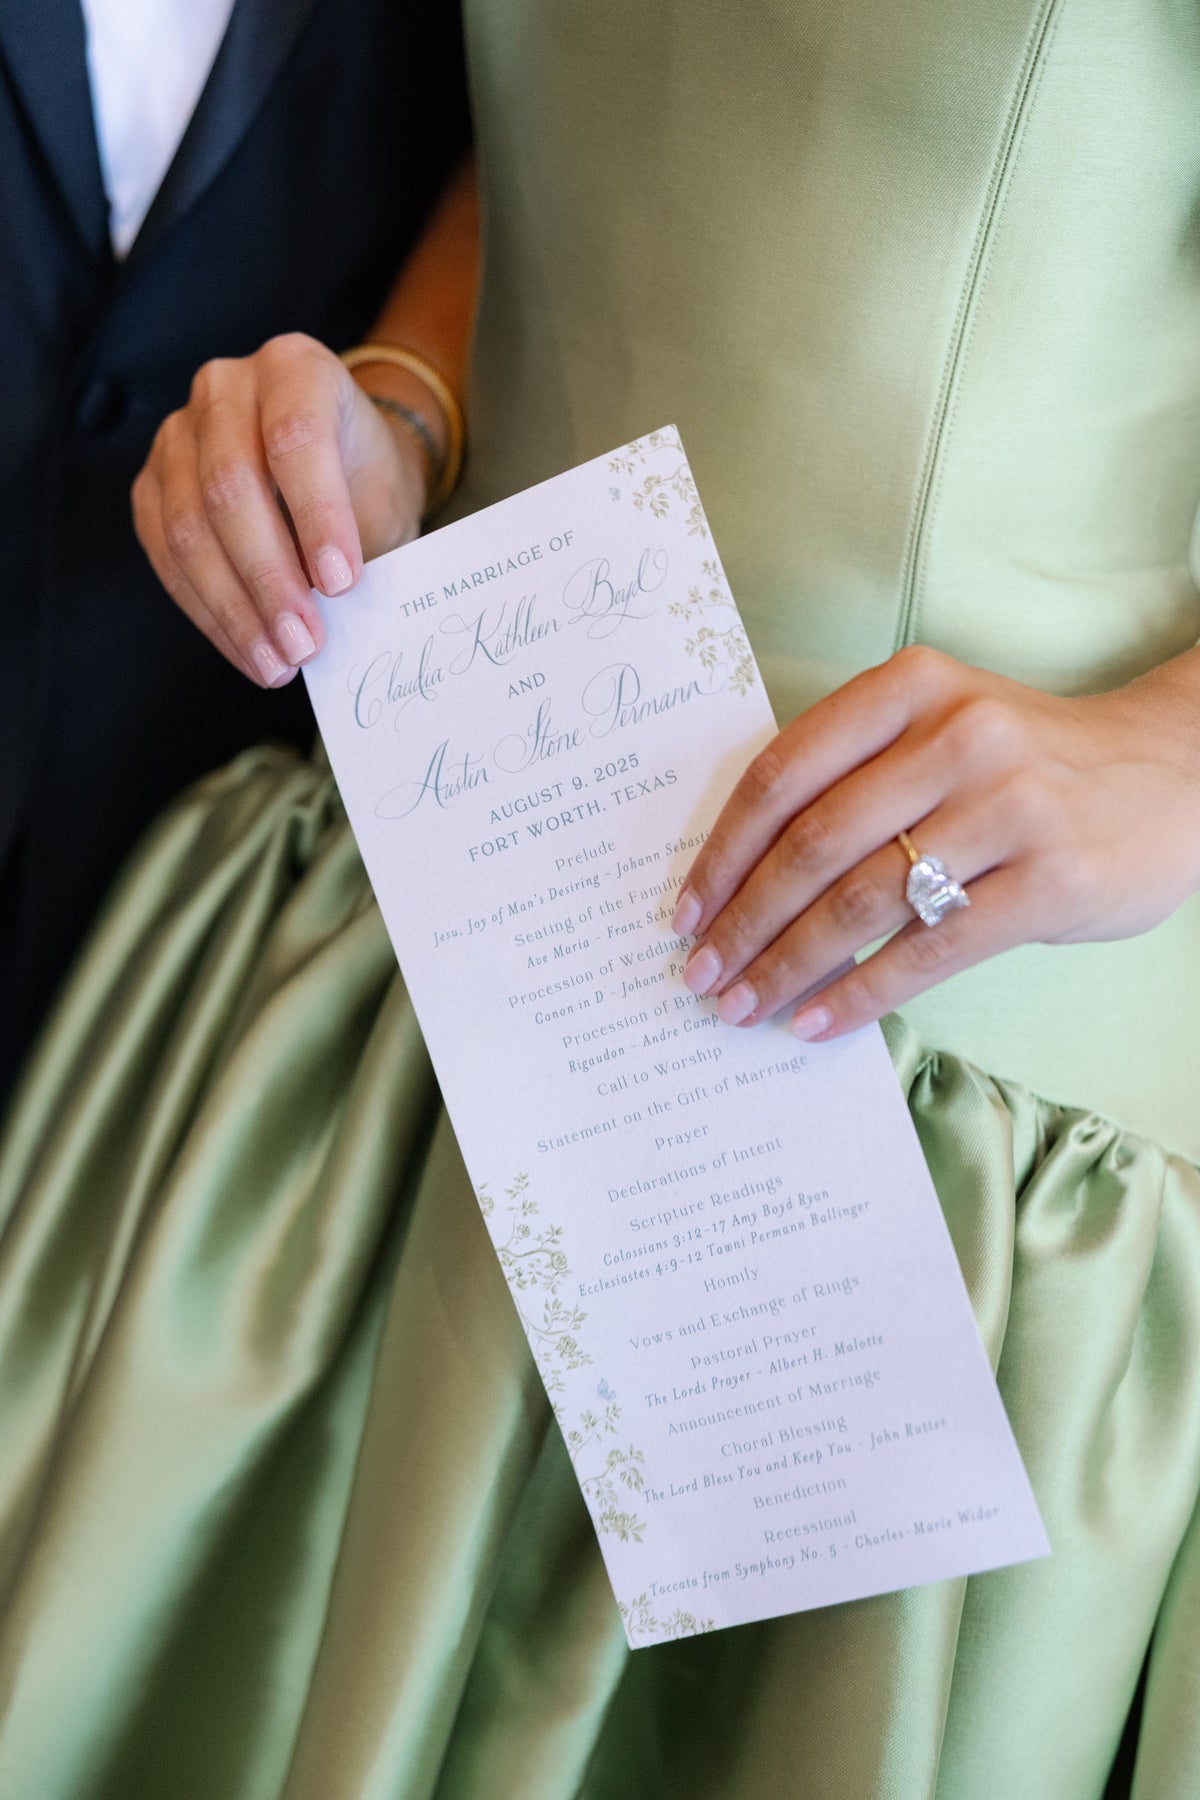 THE MARRIAGE OF
Claudia Kathleen Boyd
AND
Austin Stone Permann
AUGUST 9, 2025
FORT WORTH, TEXAS
Prelude
Jesu, Joy of Man's Desiring - Johann Sebasti
Seating of the Familie
Ave Maria - Franz Schu
Procession of Wedding
Canon in D - Johann Pa
Procession of Bri
Rigaudon - Andre Camp
Call to Worship
Statement on the Gift of Marriage
Prayer
Declarations of Intent
Scripture Readings
Colossians 3:12-17 Amy Boyd Ryan
Ecclesiastes 4:9-12 Tawni Permann Ballinger
Homily
Vows and Exchange of Rings
Pastoral Prayer
The Lords Prayer - Albert H. Malotte
Announcement of Marriage
Choral Blessing
The Lord Bless You and Keep You - John Rutter
Benediction
Recessional
Toccata from Symphony No. 5 - Charles-Marie Widor